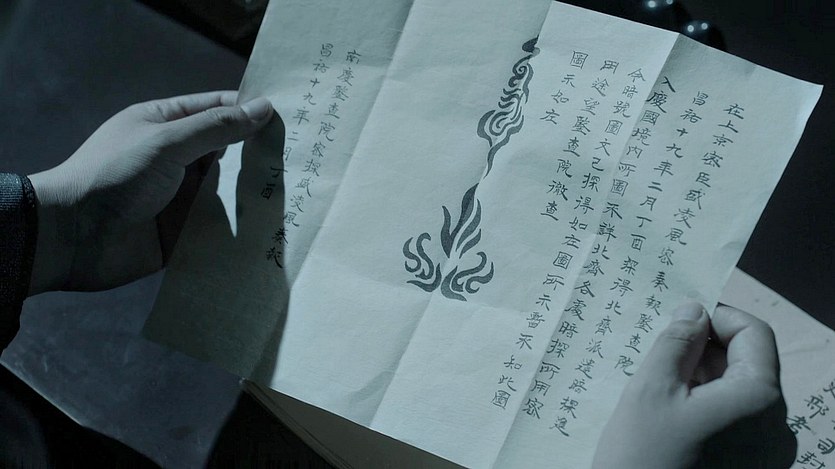 在上京密臣盛凌風密奏報鑒查院
昌祐十九年二月丁酉探得北齊派遣暗探進
入慶國境內所圖不詳北齊各處暗探所用密
令暗號圖文已探得如左圖所示暫不知此圖
用途望鑒查院徹查
圖示如左
南慶鑒查院密探盛凌風奏報
昌祐十九年二月丁酉